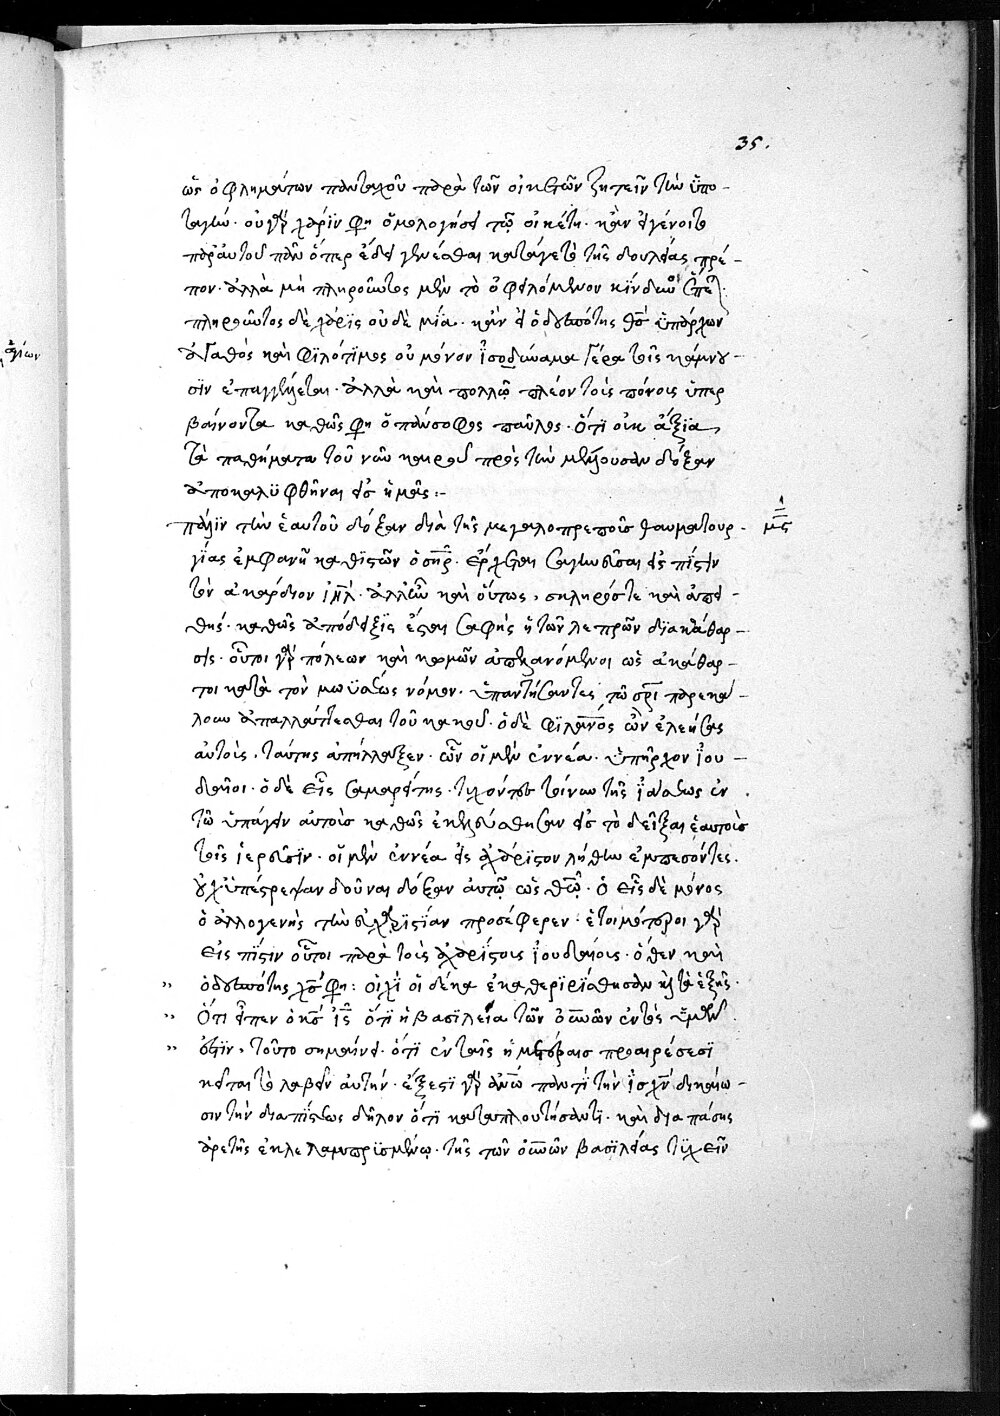 35.
ὡς ὀφλημάτων πανταχοῦ παρὰ τῶν οἰκετῶν ζητεῖν τὴν ὑπο-
ταγήν. οὐ γὰρ χάριν φη ὁμολογήσει τῷ οἰκέτῃ. κἂν ἐγένοιτο
παρ' αὐτοῦ πᾶν ὅπερ ἔδει γενέσθαι κατά γε τὸ τῆς δουλείας πρέ-
πον. ἀλλὰ μὴ πληροῦντος μὲν τὸ ὀφειλόμενον κίνδυνος
πληροῦντος δὲ χάρις οὐδὲ μία. κἂν εἰ ὁ δεσπότης θς ὑπάρχων
ἀγαθὸς καὶ φιλότιμος οὐ μόνον ἰσοδύναμα γέρα τοῖς κάμνου-
σιν ἐπαγγέλλεται. ἀλλὰ καὶ πολλῷ πλέον τοῖς πόνοις ὑπερ
βαίνοντα καθώς φη ὁ πάνσοφος παῦλος. ὅτι οὐκ ἄξια
τὰ παθήματα τοῦ νῦν καιροῦ πρὸς τὴν μέλλουσαν δόξαν
ἀποκαλυφθῆναι εἰς ἡμᾶς:-
πάλιν τὴν ἑαυτοῦ δόξαν διὰ τῆς μεγαλοπρεποῦς θαυματουρ-
γίας ἐμφανῆ καθιστῶν ὁ σηρ. ἔρχεται σαγηνεῦσαι εἰς πίστιν
τὸν ἀκάρδιον ιηλ. ἀλλ' ἦν καὶ οὕτως, σκληρός τε καὶ ἀπει-
θής. καθὼς ἀπόδειξις ἔσται σαφὴς ἡ τῶν λεπρῶν διακάθαρ-
σις. οὗτοι γὰρ πόλεων καὶ κωμῶν ἀπελαυνόμενοι ὡς ἀκάθαρ-
τοι κατὰ τὸν μωϋσέως νόμον. ὑπαντήσαντες τῷ σρι παρεκά-
λουν ἀπαλλάττεσθαι τοῦ κακοῦ. ὁ δὲ φιλανος ὢν ἐλεήσας
αὐτοὺς, ταύτης ἀπήλλαξεν. ὧν οἱ μὲν ἐννέα. ὑπῆρχον ἰου-
δαῖοι. ὁ δὲ εἷς σαμαρείτης. τυχόντες τοίνυν τῆς ἰάσεως ἐν
τῷ ὑπάγειν αὐτοὺς καθὼς ἐκελεύσθησαν εἰς τὸ δεῖξαι ἑαυτοὺς
τοῖς ἱερεῦσιν. οἱ μὲν ἐννέα εἰς ἀχάριστον λήθην ἐμπεσόντες.
οὐχ ὑπέστρεψαν δοῦναι δόξαν αὐτῷ ὡς θῷ. ὁ εἷς δὲ μόνος
ὁ ἀλλογενὴς τὴν εὐχαριστίαν προσέφερεν. ἑτοιμότεροι γὰρ
εἰς πίστιν οὗτοι παρὰ τοὺς ἀχαρίστους ἰουδαίους. ὅθεν καὶ
ὁ δεσπότης χς φη: οὐχὶ οἱ δέκα ἐκαθερίσθησαν καὶ τὰ ἑξῆς.
" Ὅτι εἶπεν ὁ κς ις ὅτι ἡ βασιλεία τῶν οὐνῶν ἐντὸς ὑμῶν
" ἐστιν, τοῦτο σημαίνει. ὅτι ἐν ταῖς ἡμετέραις προαιρέσεσι
" κεῖται τὸ λαβεῖν αὐτήν. ἔξεστι γὰρ ἀνῳ παντὶ τὴν ἰσχὺν δικαίω-
σιν τὴν διὰ πίστεως δῆλον ὅτι καταπλουτήσαντι. καὶ διὰ πάσης
ἀρετῆς ἐκλελαμπρισμένῳ. τῆς τῶν οὐνῶν βασιλείας τυχεῖν
ἁγίων